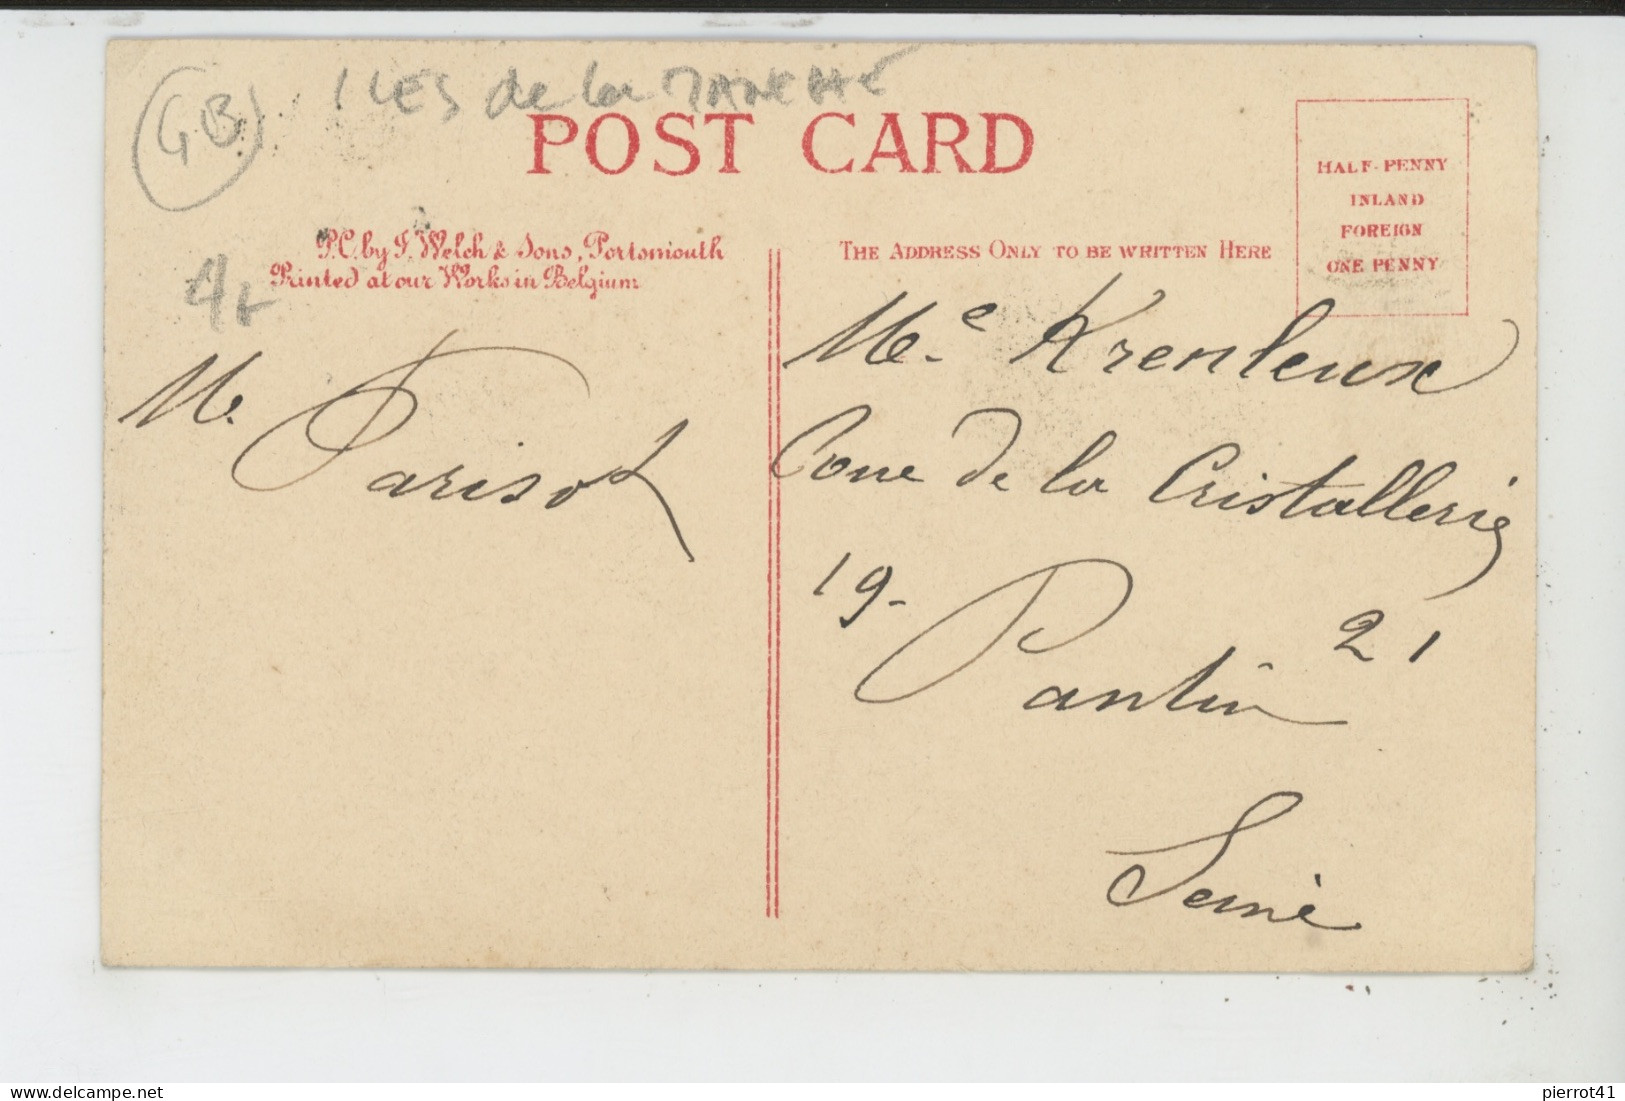 GB ILES de la MANCHE
POST CARD
HALF-PENNY
INLAND
FOREIGN
ONE PENNY
P.C. by J. Welch & Sons, Portsmouth
Printed at our Works in Belgium
THE ADDRESS ONLY TO BE WRITTEN HERE
M. Parisot
Me. Krenleux
de la Cristallerie
19- 21
Pantin
Seine
delcampe.net
pierrot41